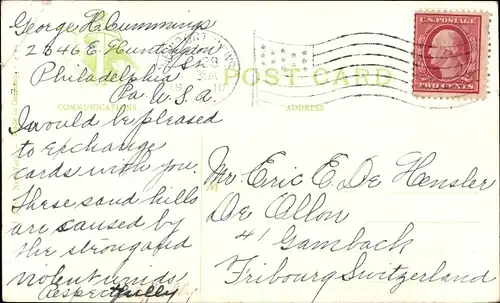 George R. Cummings
2346 E. Huntingdon
U.S.A.
Philadelphia
Pa U.S.A.
COMMUNICATIONS
I would be pleased
to exchange
cards with you.
These sand hills
are caused by
the strong and
violent winds
Respectfully
POST CARD
ADDRESS
U.S. POSTAGE
TWO CENTS
Mr Eric E. De Hensler
De Ollon
41 Gamback
Fribourg Switzerland